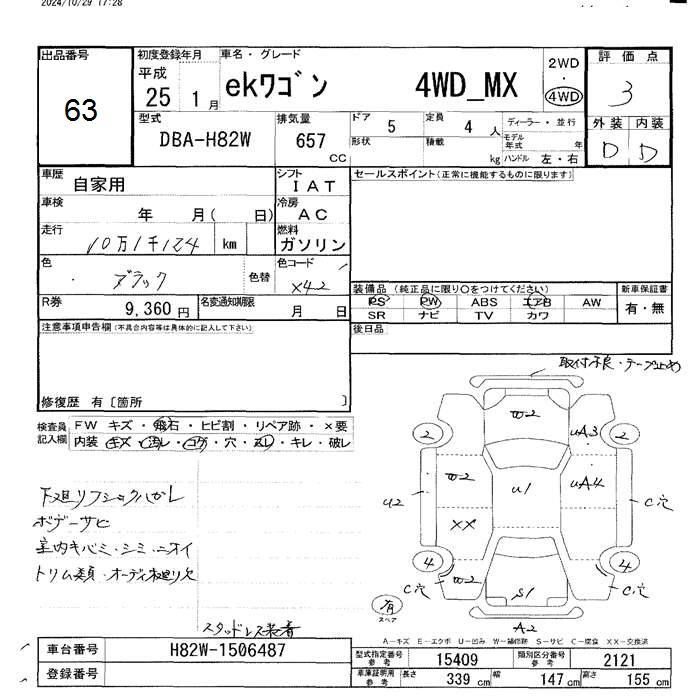 2024/10/29 17:28
出品番号
63
初度登録年月
平成
25 1月
車名・グレード
ekワゴン 4WD_MX
2WD
・
4WD
評価点
3
外装 内装
D D
型式
DBA-H82W
排気量
657
cc
ドア 5
形状
定員 4 人
積載 kg
ディーラー・並行
モデル年式 年
ハンドル 左・右
車歴
自家用
シフト
IAT
セールスポイント(正常に機能するものに限ります)
車検
年 月( 日)
冷房
AC
走行
10万1千124 km
燃料
ガソリン
色
ブラック
色替
色コード
X42
装備品 (純正品に限り○をつけてください)
PS PW ABS エアB AW
SR ナビ TV カワ
新車保証書
有・無
R券
9,360円
名変通知期限
月 日
後日品
注意事項申告欄(不具合内容等は具体的に記入して下さい)
修復歴 有〔箇所 〕
検査員記入欄
FW キズ・飛石・ヒビ割・リペア跡・×要
内装・キズ・汚レ・コゲ・穴・スレ・キレ・破レ
下廻リフショクハガレ
ボデーサビ
室内キバミ・シミ・ニオイ
トリム類・オーディオ廻リ欠
スタッドレス装着
取付不良・テープ止め
W2
2
2
UA3
U2
W2
U1
UA4
C穴
XX
4
4
C穴
W2
S1
C穴
有
スペア
A2
A-キズ E-エクボ U-凹み W-補修跡 S-サビ C-腐食 XX-交換済
車台番号
H82W-1506487
登録番号
型式指定番号 参考
15409
類別区分番号 参考
2121
車庫証明用 参考
長さ 339 cm
幅 147 cm
高さ 155 cm